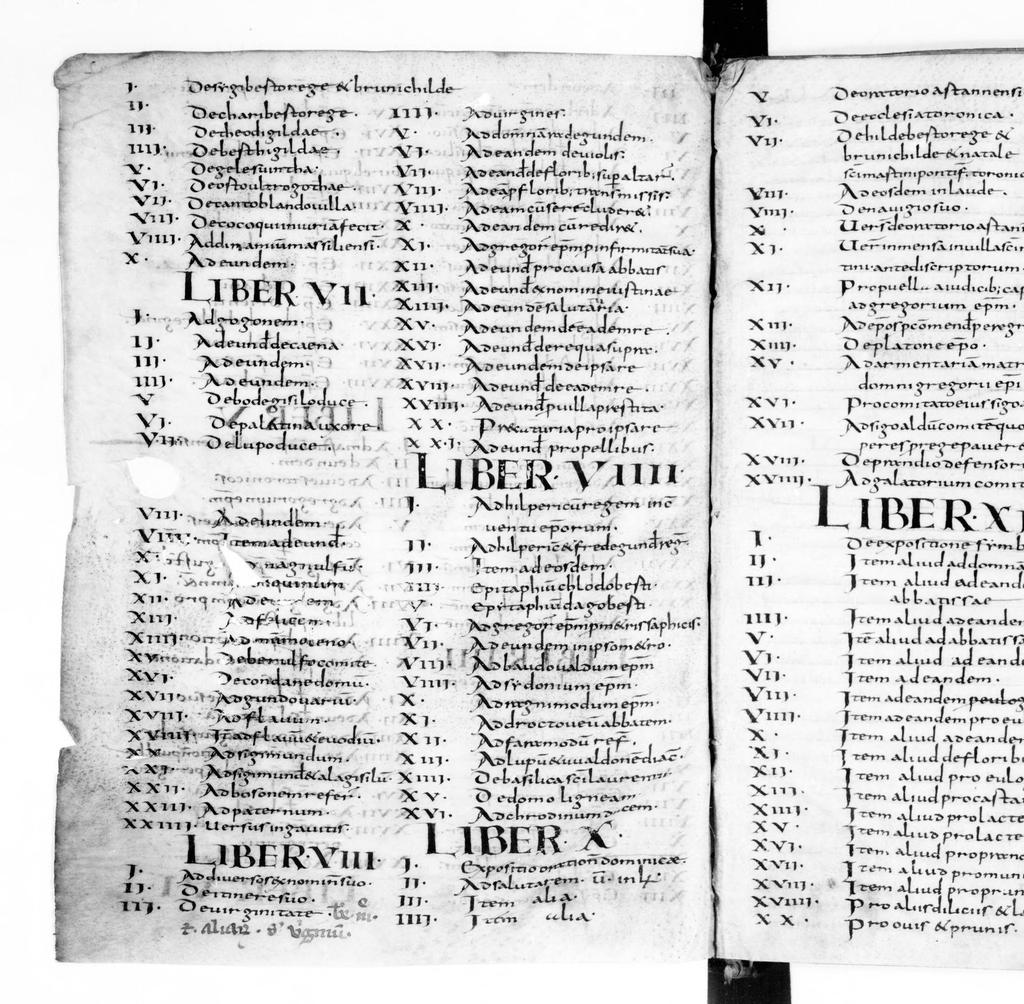 I. De sygibesto rege & brunichilde
II. De charibesto rege.
III. De theodigildae.
IIII. De besthigildae.
V. De gelesuintha.
VI. De ostoultrogothae.
VII. De cantoblandouilla.
VIII. De cocoquiiniuriāfecit.
VIIII. Addinamiūmassiliensī.
X. Ad eundem.
LIBER VII.
I. Ad gogonem.
II. Ad eund decaena
III. Ad eundem.
IIII. Ad eundem.
V De bodegisiloduce.
VI. De palatina uxore
VII. De lupoduce.
VIII. Ad eundem.
VIIII. Item ad eund.
X. magnulfū.
XI. iouinum
XII.
XIII. Ad felicem.
XIIII. Ad
XV. De benulfo comite
XVI. De condane domū.
XVII. Ad gundouariū.
XVIII. Ad flauum.
XVIIII. It ad flauū & euodiū.
XX. Ad sigimundum.
XXI. Ad sigimund & alagisilū
XXII. Ad bosonem refer.
XXIII. Ad paternum.
XXIIII. Uersus ingauitis.
LIBER. VIII.
I. Ad diuersos & nomin suo.
II. De itinere suo.
III. De uirginitate
IIII. Ad uirgines.
V. Ad domnā radegundem.
VI. Ad eandem de uiolis.
VII. Ad eand de florib; sup altar.
VIII. Ad eāp florib; transmissis.
VIIII. Ad eam cū se recluder&.
X. Ad eandem cū redir&.
XI. Ad gregor epm p infirmitat sua
XII. Ad eund pro causa abbatis
XIII. Ad eund & nomine iustinae
XIIII. Ad eundē salutaria.
XV. Ad eundem de eadem re
XVI. Ad eund de re qua supra.
XVII. Ad eundem de ipsa re
XVIII. Ad eund de eadem re
XVIIII. Ad eund p uilla prestita
XX. Precaturia pro ipsa re
XXI. Ad eund pro pellibus.
LIBER. VIIII.
I. Ad hilpericū regem in c̄
uentu eporum.
II. Ad hilperic & fredegund reg
III. Item ad eosdem.
IIII. Epitaphiū chlodobesti
V Epytaphiū dagobesti.
VI. Ad gregor epm p in & ris saphicis.
VII. Ad eundem in ipso m&ro.
VIII. Ad baudoualdum epm
VIIII. Ad sydonium epm.
X. Ad ragnimodum epm.
XI. Ad droctoueū abbatem.
XII. Ad faramodū ref.
XIII. Ad lupū & uualdonē diac.
XIIII. De basilica sci laurenti
XV. De domo ligneam
XVI. Ad chrodinum ducem.
LIBER X.
I. Expositio orationi dominicae.
II. Ad salutarem.
III. Item alia.
IIII. Item alia.
V De oratorio astannensi
VI. De ecclesia toronica.
VII. De hildebesto rege &
brunichilde & natale
sci mastini pontif. toronic
VIII. Ad eosdem in laude.
VIIII. De nauigio suo.
X. Uers de oratorio astani
XI. Uer in mensa in uilla sci
tini ante discriptorum
XII. Pro puella a iudicib; cap
ad gregorium epm.
XIII. Ad epos p cōmend peregri
XIIII. De platone epo.
XV. Ad armentariā matr
domni gregorii epi
XVI. Pro comitato eius sigo
XVII. Ad sigoaldū comitē quo
peres p rege pauere
XVIII. De prandio defensor
XVIIII. Ad galatorium comit
LIBER. XI
I. De expositione symb
II. Item aliud ad domnā
III. Item aliud ad eandē
abbatissae
IIII. Item aliud ad eandem
V. Itē aliud ad abbatissa
VI. Item aliud ad eande
VII. Item ad eandem.
VIII. Item ad eandem p eulog
VIIII. Item ad eandem pro eu
X. Item aliud ad eande
XI. Item aliud de florib
XII. Item aliud pro eulo
XIII. Item aliud pro casta
XIIII. Item aliud pro lacte
XV. Item aliud pro lacte
XVI. Item aliud pro pran
XVII. Item aliud pro mun
XVIII. Item aliud pro prun
XVIIII. Pro aliis diliciis & la
XX. Pro ouis & prunis.